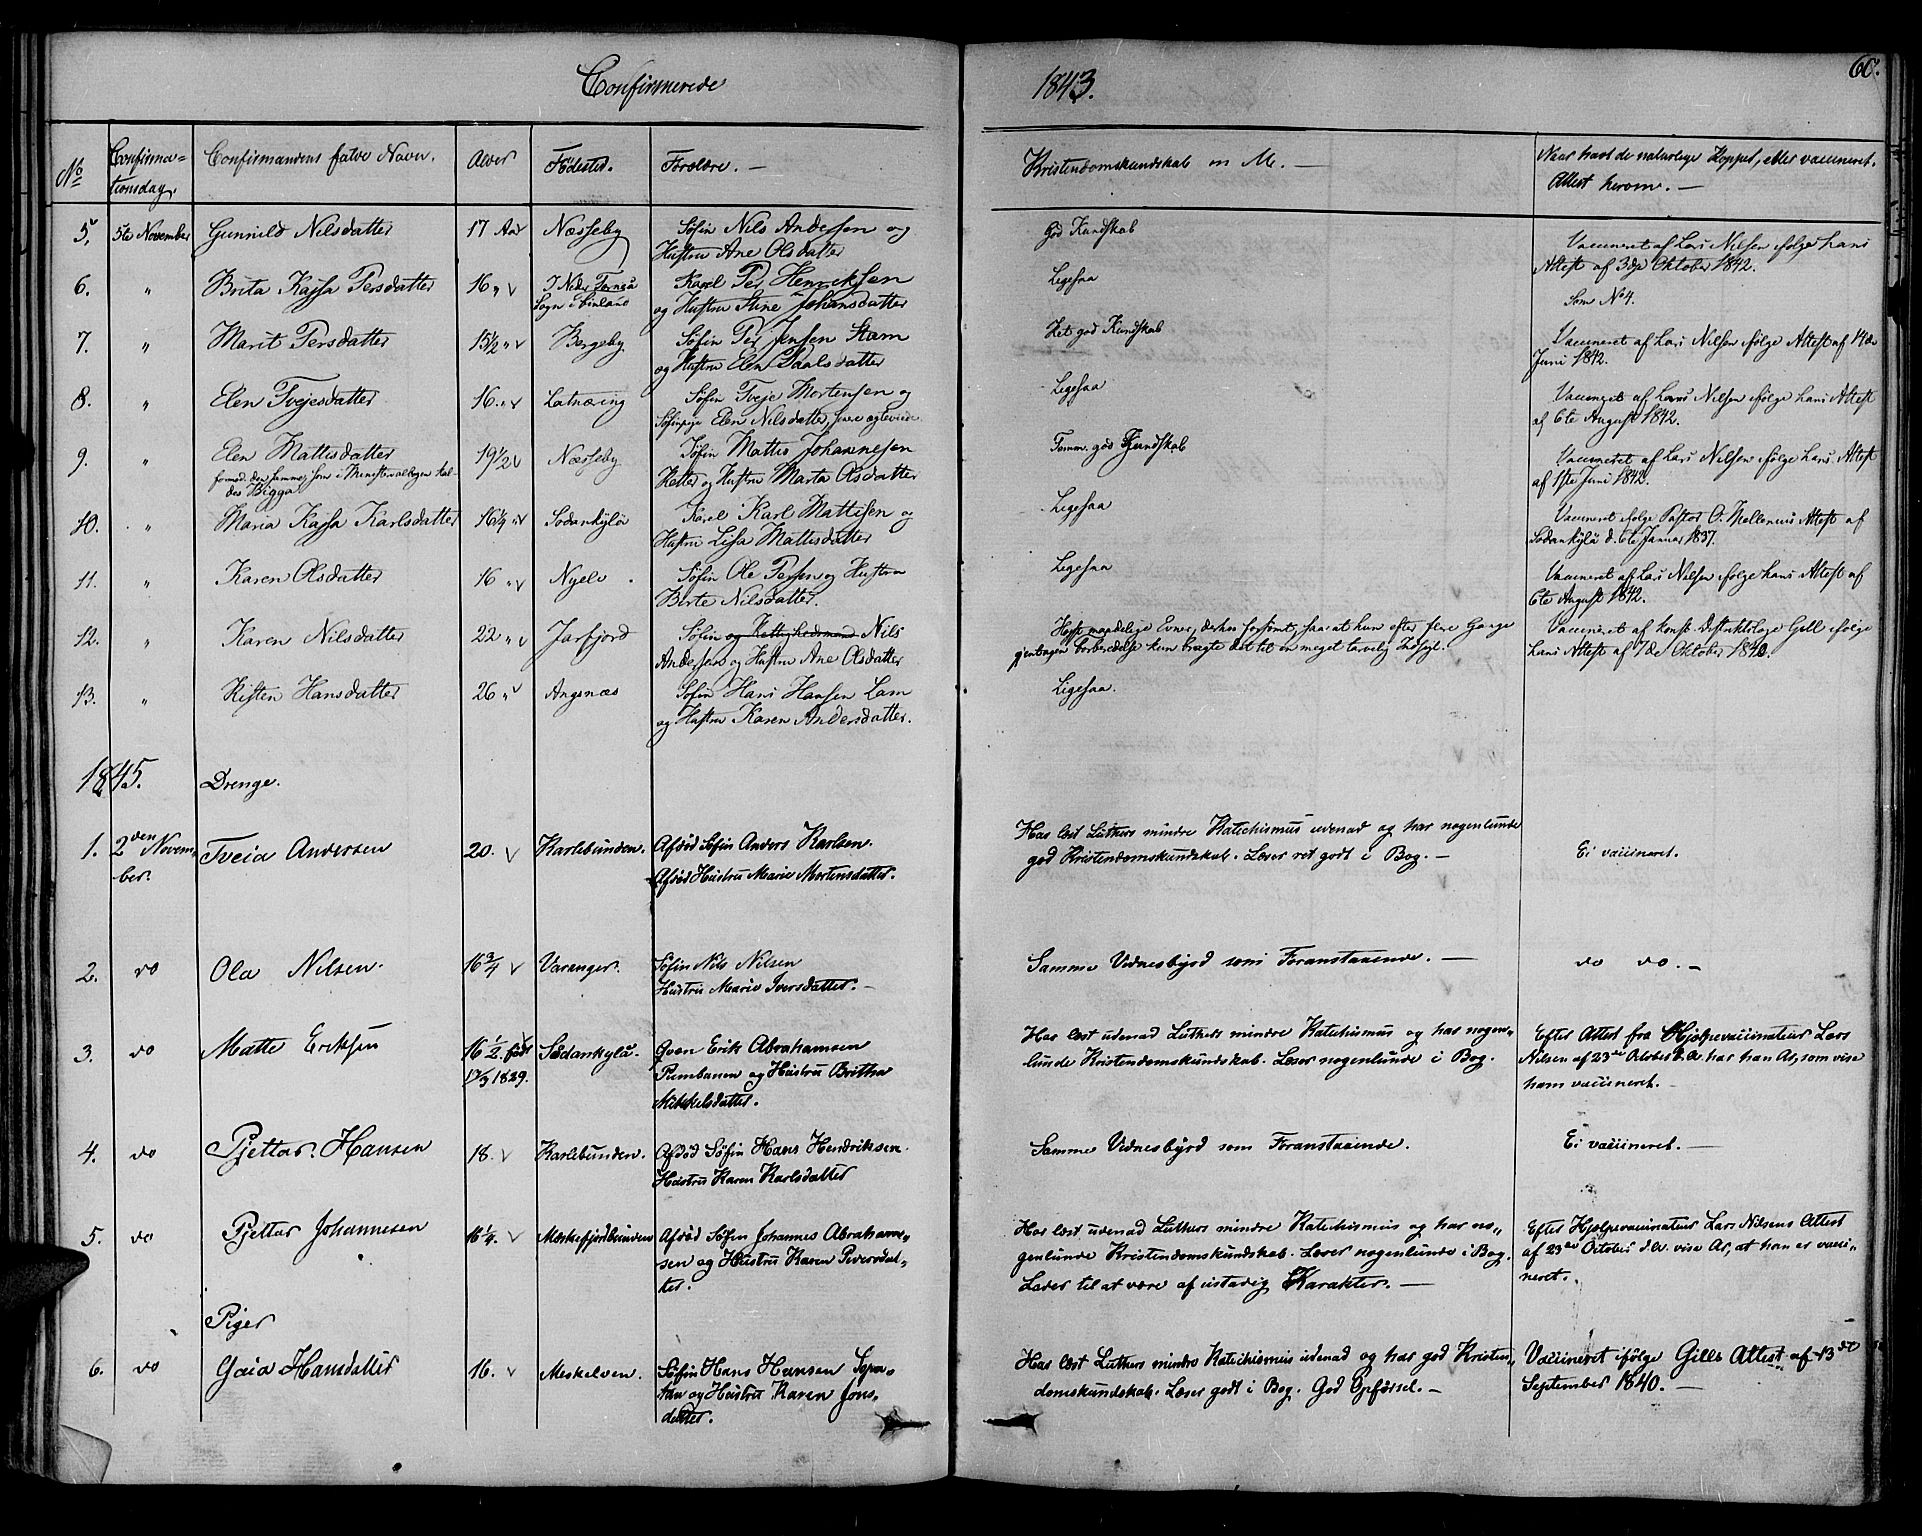 Confirmerede
1843.
60.
No
Confirma=
tionsdag.
Confirmandens fulde Navn.
Alder
Födested.
Forældre. —
Kristendomskundskab m M. —
Naar havt de naturlige Kopper, eller vaccineret.
Attest herom. —
5. 5te November Gunnild Nilsdatter 17 Aar Næsseby Söfin Nils Andersen og
Hustru Ane Olsdatter
God Kundskab
Vaccineret af Lars Nilsen ifölge hans
Attest af 3die Oktober 1842.
6. " Brita Kajsa Persdatter 16 " I Neder Torneå
Sogn i Finland
Karel Per Henriksen
og Hustru Stine Johansdatter
Ligesaa
Som No 4.
7. " Marit Persdatter 15 1/2 " Bergeby Söfin Per Jensen Stam
og Hustru Elen Paalsdatter
Ret god Kundskab
Vaccineret af Lars Nilsen ifölge Attest af 14de
Juni 1842.
8. " Elen Tvejesdatter 16 " Latnæring Söfin Tveje Mortensen og
Söfinpige Elen Nilsdatter,
Ligesaa
Vaccineret af Lars Nilsen ifölge hans Attest
af 6te August 1842.
9. " Elen Mattisdatter 19 1/2 Næsseby Söfin Mattis Johannesen
formod. den samme, som i Ministerialbogen kal-
des Bigga
Ketter og Hustru Marta Olsdatter
Temm. god Kundskab
Vaccineret af Lars Nilsen ifölge hans Attest
af 1ste Juni 1842.
10. " Maria Kajsa Karlsdatter 16 1/4 " Sodankylä Karel Karl Mattisen og
Hustru Lisa Mattisdatter
Ligesaa
Vaccineret ifölge Pastor O. Mellenius Attest af
Sodankylä d. 6te Januar 1837.
11. " Karen Olsdatter 16 " Nyelv Söfin Ole Persen og Hustru
Berte Nilsdatter.
Ligesaa
Vaccineret af Lars Nilsen ifölge hans Attest af
6te August 1842.
12. " Karen Nilsdatter 22 " Jarfjord Söfin og Rettighedsmand Nils
Andersen og Hustru Ane Olsdatter
Höist maadelige Evner, derhos forsömt, saa at hun efter flere Gange
gjentagen Forberedelse kun bragte det til en meget tarvelig Indsigt.
Vaccineret af konst. Distriktslæge Gjell ifölge
hans Attest af 7de Oktober 1840.
13. " Kirsten Hansdatter 26 " Angsnæs Söfin Hans Hansen Lam
og Hustru Karen Andersdatter.
Ligesaa.
1845. Drenge.
1. 2den Novem=
ber.
Tveia Andersen 20. Karlebunden. Afdöd Söfin Anders Karlsen.
Afdöd Hustru Marie Mortensdatter.
Har læst Luthers mindre Katechismus udenad og har nogenlunde
god Kristendomskundskab. Læser ret godt i Bog. —
Ei vaccineret.
2. do Ola Nilsen. 16 3/4 Varanger. Söfin Nils Nilsen
Hustru Marie Iversdatter. —
Samme Vidnesbyrd som Foranstaaende. —
do do. —
3. do Matte Eriksen 16 1/2. født
17/3 1829.
Sodankylä. Qvæn Erik Abrahamsen
Pumbanen og Hustru Britha
Mikkelsdatter.
Har læst udenad Luthers mindre Katechismus og har nogen=
lunde Kristendomskundskab. Læser nogenlunde i Bog.
Efter Attest fra Hjelpevaccinateur Lars
Nilsen af 23de Octobr d. A. har han Ar, som vise
ham vaccineret. —
4. do Pjettar. Hansen 18. Karlebunden. Afdöd Söfin Hans Hendriksen.
Hustru Karen Karlsdatter
Samme Vidnesbyrd som Foranstaaende.
Ei vaccineret. —
5. do Pjettar Johannesen 16 1/4. Meskefjordbunden Afdöd Söfin Johannes Abraham=
sen og Hustru Karen Pedersdat=
ter.
Har læst udenad Luthers mindre Katechismus og har no=
genlunde Kristendomskundskab. Læser nogenlunde i Bog.
Lader til at være af ustadig Karakter. —
Efter Hjelpevaccinateur Lars Nilsens Attest
af 23de October d. A. vise Ar, at han er vacci=
neret.
Piger
6. do Gaia Hansdatter 16. Meskelven. Söfin Hans Hansen
og Hustru Karen Jons=
datter.
Har læst Luthers mindre Katechismus udenad og har god Kristen=
domskundskab. Læser godt i Bog. God Opförsel. —
Vaccineret ifölge Gills Attest af 13de
September 1840. —